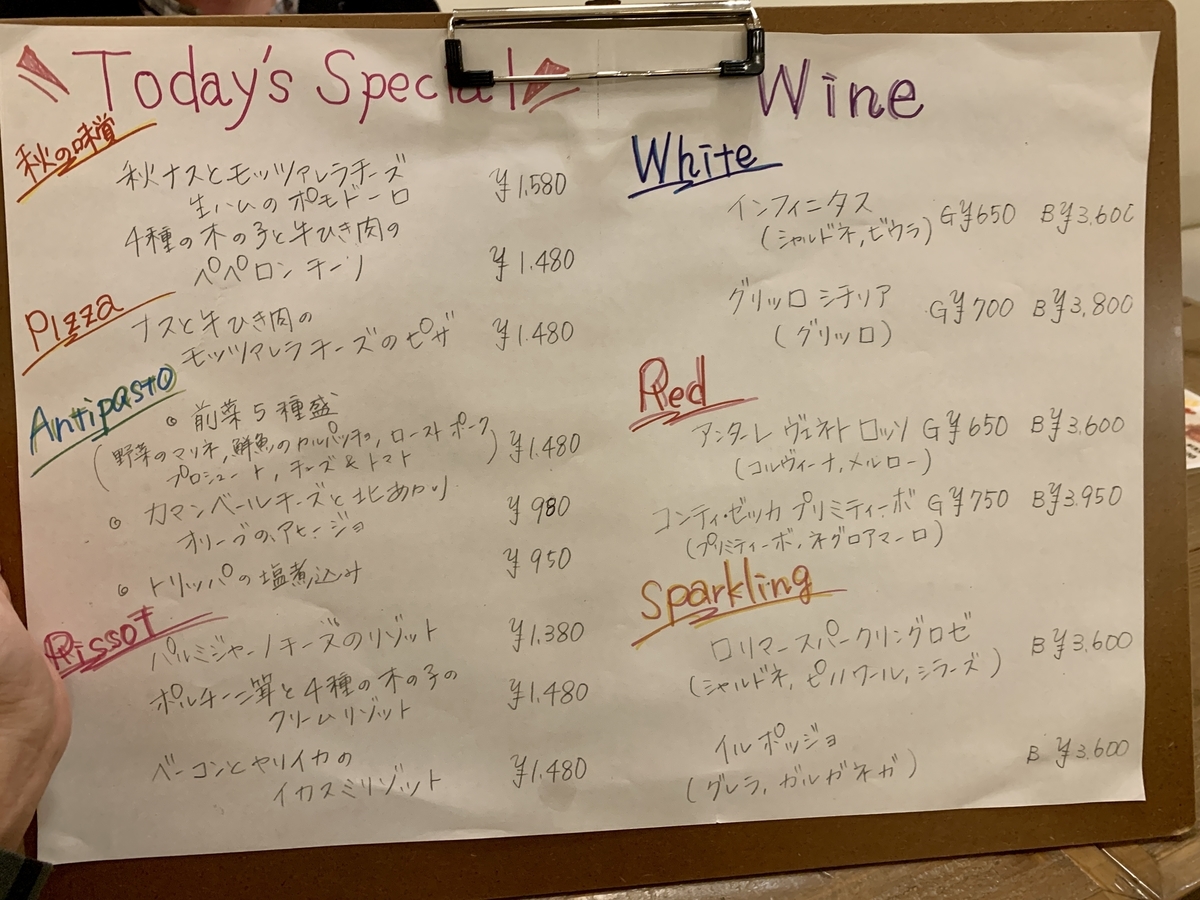 Today's Special
秋の味覚
秋ナスとモッツァレラチーズ
生ハムのポモドーロ ¥1.580
4種の木の子と牛ひき肉の
ペペロンチーノ ¥1.480
Pizza
ナスと牛ひき肉の
モッツァレラチーズのピザ ¥1.480
Antipasto
◎ 前菜5種盛
(野菜のマリネ,鮮魚のカルパッチョ,ローストポーク
プロシュート,チーズ&トマト) ¥1.480
◎ カマンベールチーズと北あかり
オリーブのアヒージョ ¥980
◎ トリッパの塩煮込み ¥950
Rissot
パルミジャーノチーズのリゾット ¥1.380
ポルチーニ茸と4種の木の子の
クリームリゾット ¥1.480
ベーコンとヤリイカの
イカスミリゾット ¥1.480
Wine
White
インフィニタス
(シャルドネ,ビウラ) G¥650 B¥3.600
グリッロ シチリア
(グリッロ) G¥700 B¥3,800
Red
アンターレ ヴェネト ロッソ G¥650 B¥3.600
(コルヴィーナ,メルロー)
コンティ・ゼッカ プリミティーボ G¥750 B¥3.950
(プリミティーボ,ネグロアマーロ)
Sparkling
ロリマースパークリングロゼ
(シャルドネ,ピノノワール,シラーズ) B¥3.600
イル ポッジョ
(グレラ,ガルガネガ) B ¥3.600